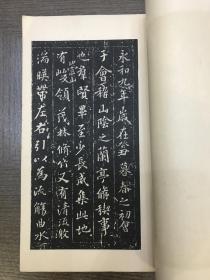 永和九年歲在癸丑暮春之初會
于會稽山陰之蘭亭脩稧事
也群賢畢至少長咸集此地
有崇山峻領茂林脩竹又有清流激
湍暎帶左右引以為流觴曲水